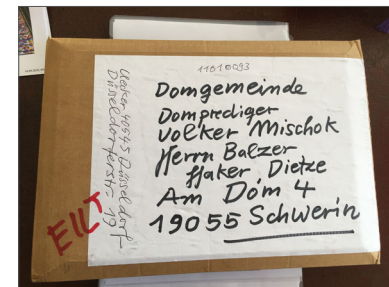 11010093
Domgemeinde
Domprediger
Volker Mischok
Herrn Balzer
Haker Dietze
Am Dom 4
19055 Schwerin
Uecker 40545 Düsseldorf
Düsseldorferstr. 19
EILT